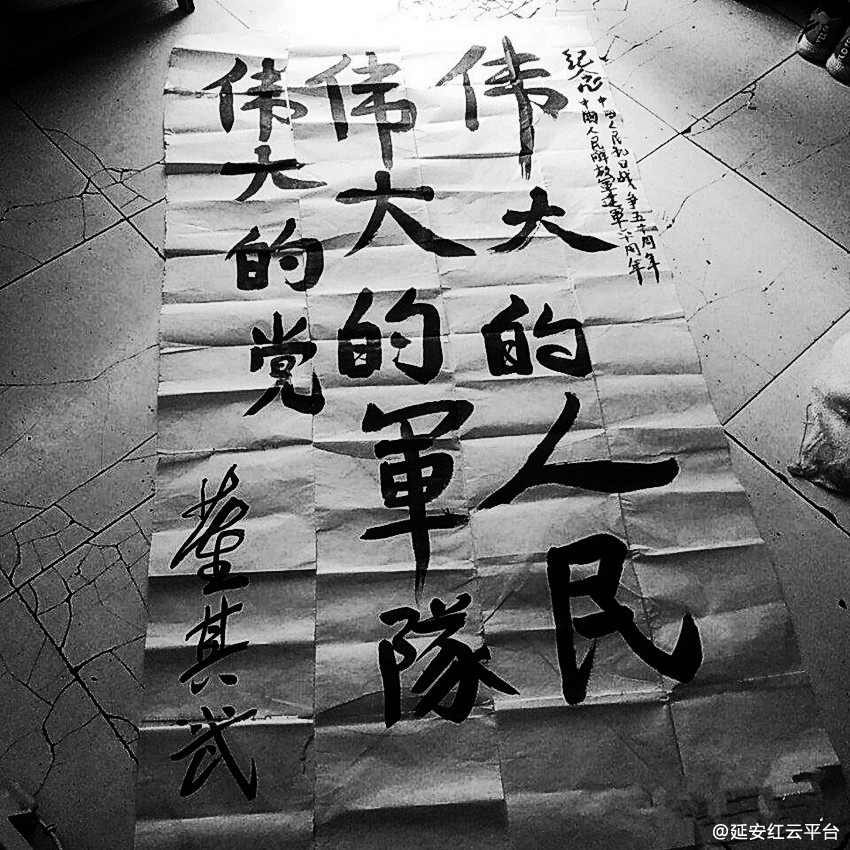 纪念中国人民抗日战争五十周年
中國人民解放军建軍六十周年
伟大的人民
伟大的軍隊
伟大的党
董其武
@延安红云平台